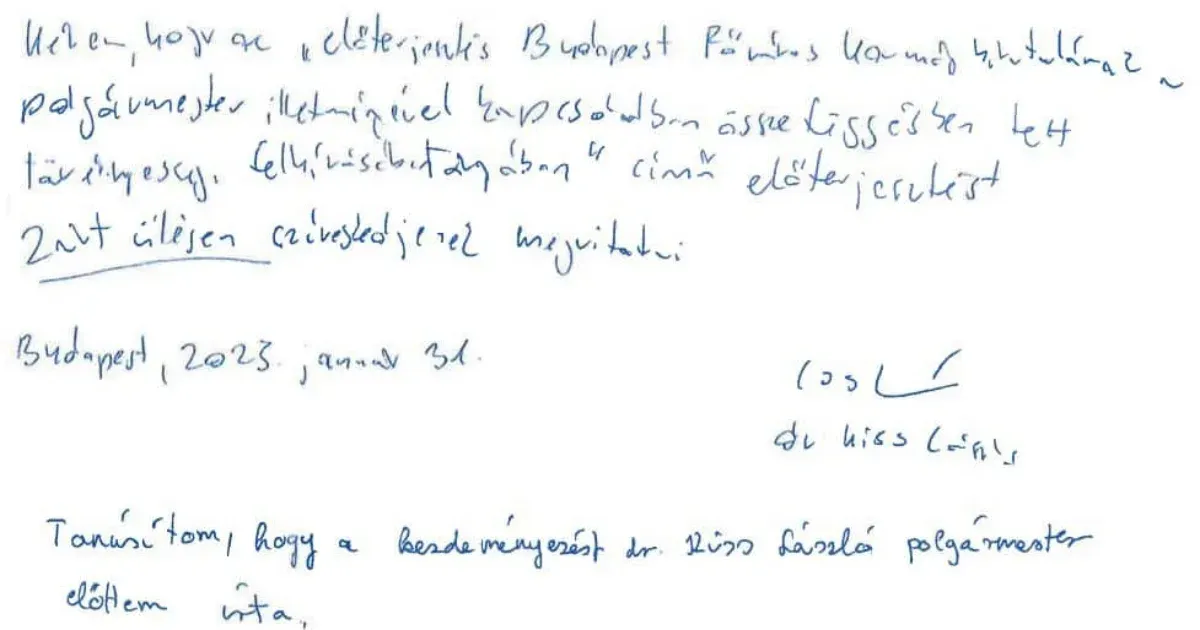 Kérem, hogy az „előterjesztés Budapest Főváros Kormányhivatalának a
polgármester illetményével kapcsolatban összefüggésben tett
törvényességi felhívása tárgyában" című előterjesztést
Zárt ülésen szíveskedjenek megvitatni
Budapest, 2023. január 31.
dr Kiss László
Tanúsítom, hogy a kezdeményezést dr. Kiss László polgármester
előttem írta.